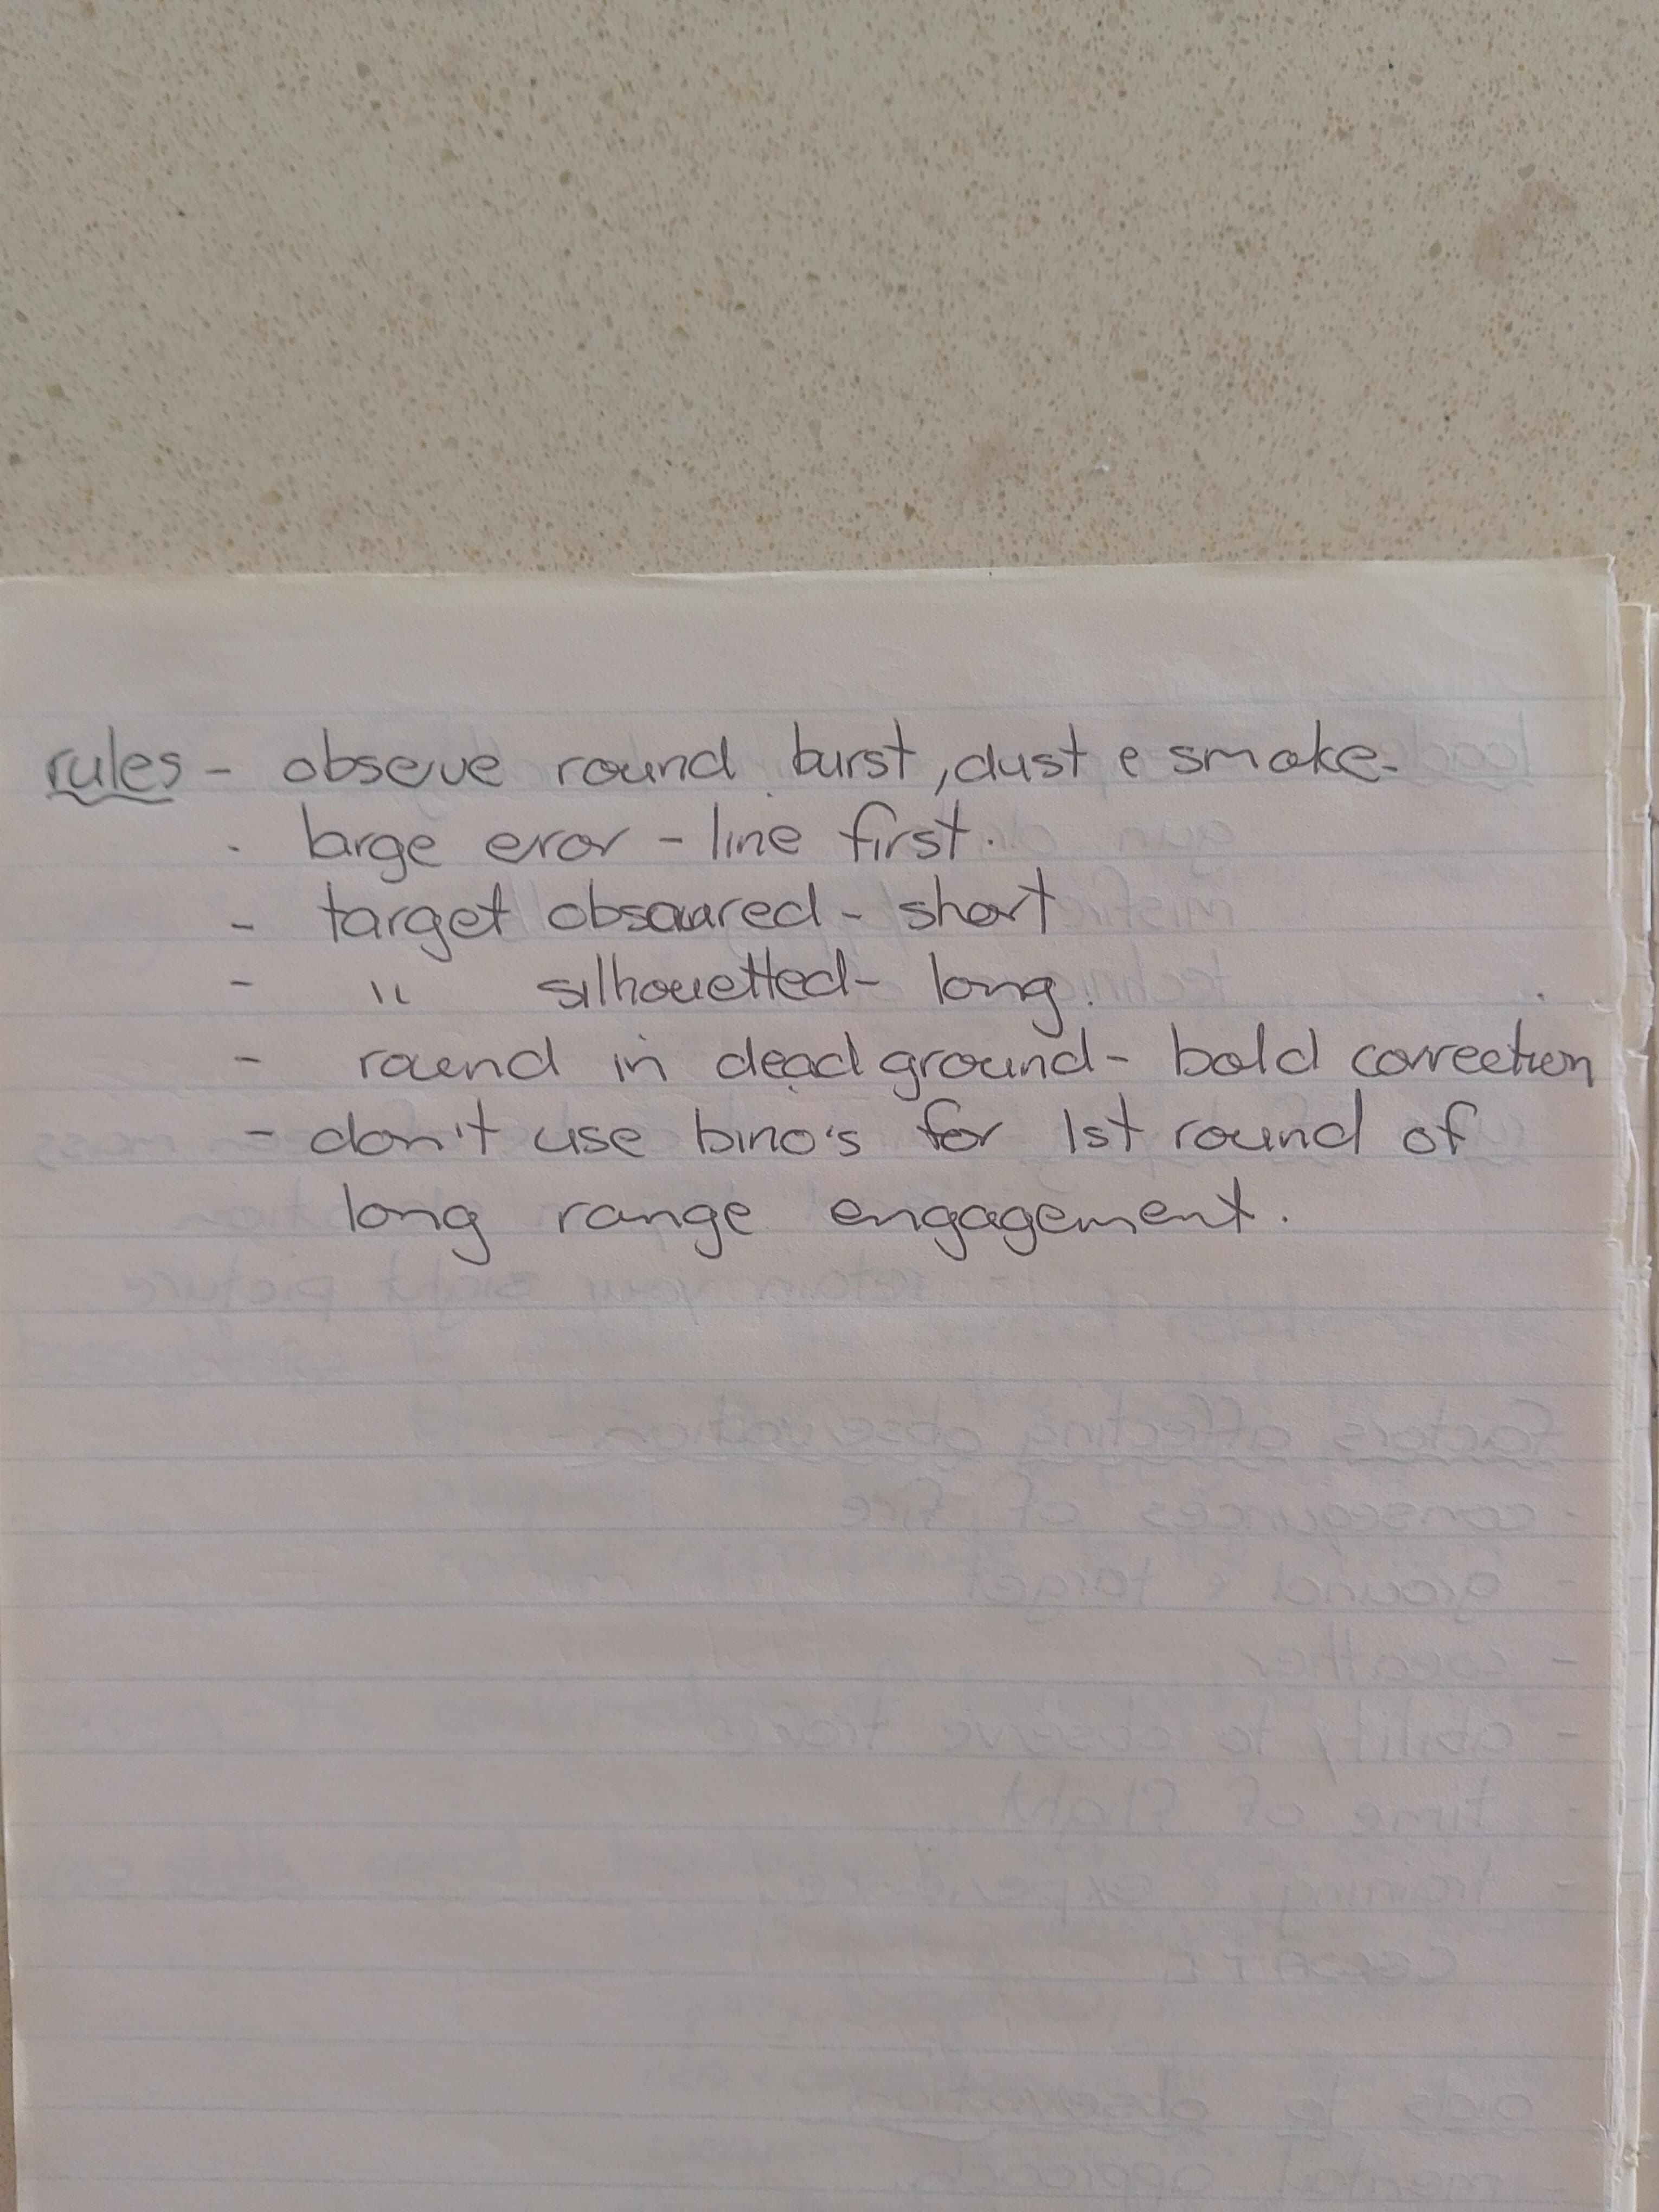 rules - observe round burst, dust & smoke.
- large error - line first.
- target obscured - short
- " silhouetted - long.
- round in dead ground - bold correction
- don't use bino's for 1st round of
long range engagement.